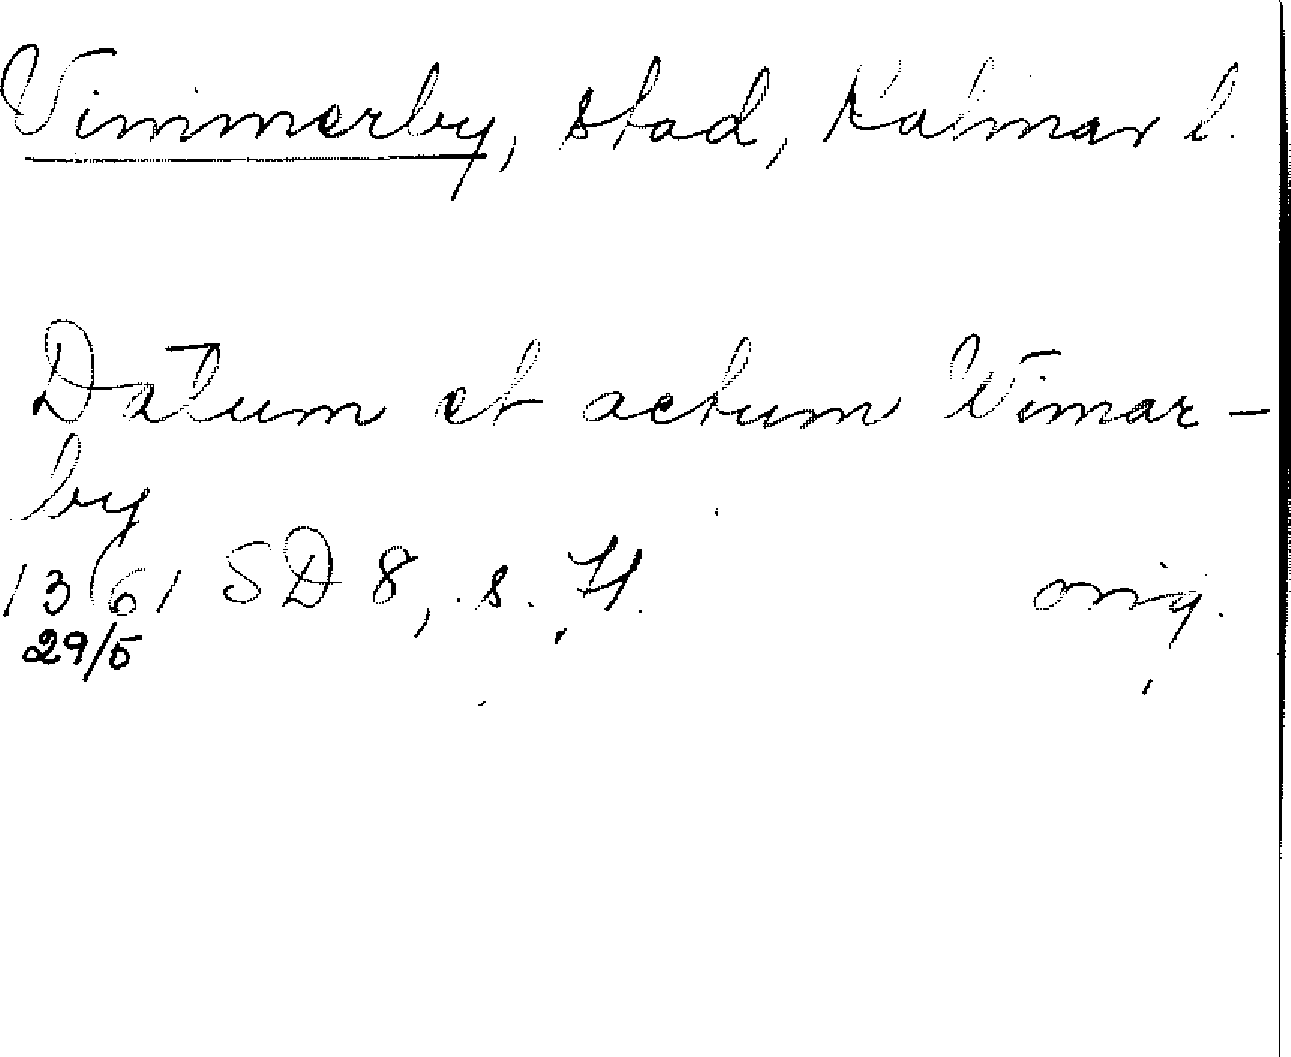 Vimmerby, stad, Kalmar l.
Datum et actum Wimar-
by
1361 SD 8, s. 71. orig.
29/5